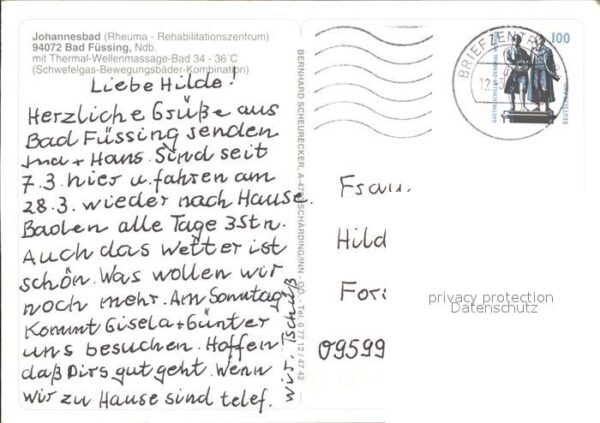 Johannesbad (Rheuma - Rehabilitationszentrum)
94072 Bad Füssing, Ndb.
mit Thermal-Wellenmassage-Bad 34 - 36°C
(Schwefelgas-Bewegungsbäder-Kombination)
Liebe Hilde!
Herzliche Grüße aus
Bad Füssing senden
+ Hans. Sind seit
7.3. hier u. fahren am
28.3. wieder nach Hause.
Baden alle Tage 3 Stn.
Auch das Wetter ist
schön. Was wollen wir
noch mehr. Am Sonntag
kommt Gisela + Günter
uns besuchen. Hoffen
daß Dirs gut geht. Wenn
wir zu Hause sind telef.
wir. Tschüß
BERNHARD SCHEURECKER, SCHÄRDING/INN - OÖ. - Tel. 0 77 12 / 47 42
BRIEFZENTR
100
Frau
Hild
Fors
09599
privacy protection
Datenschutz